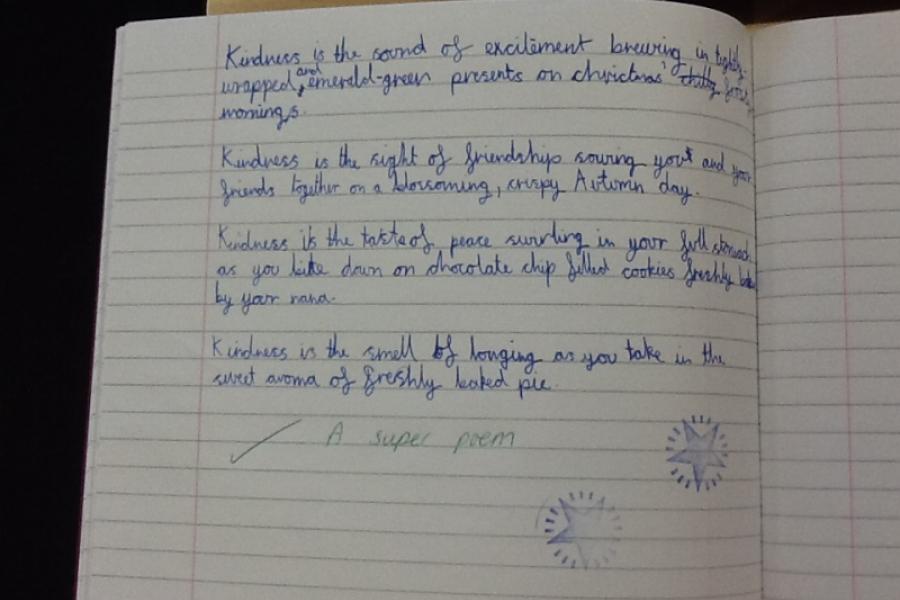 Kindness is the sound of excitement brewing in tightly-
wrapped, and emerald-green presents on christmas' frosty
mornings.
Kindness is the sight of friendship sowing you and your
friends together on a blossoming, crispy Autumn day.
Kindness is the taste of peace swirling in your full stomach
as you bite down on chocolate chip filled cookies freshly
by your nana.
Kindness is the smell of longing as you take in the
sweet aroma of freshly baked pie.
A super poem